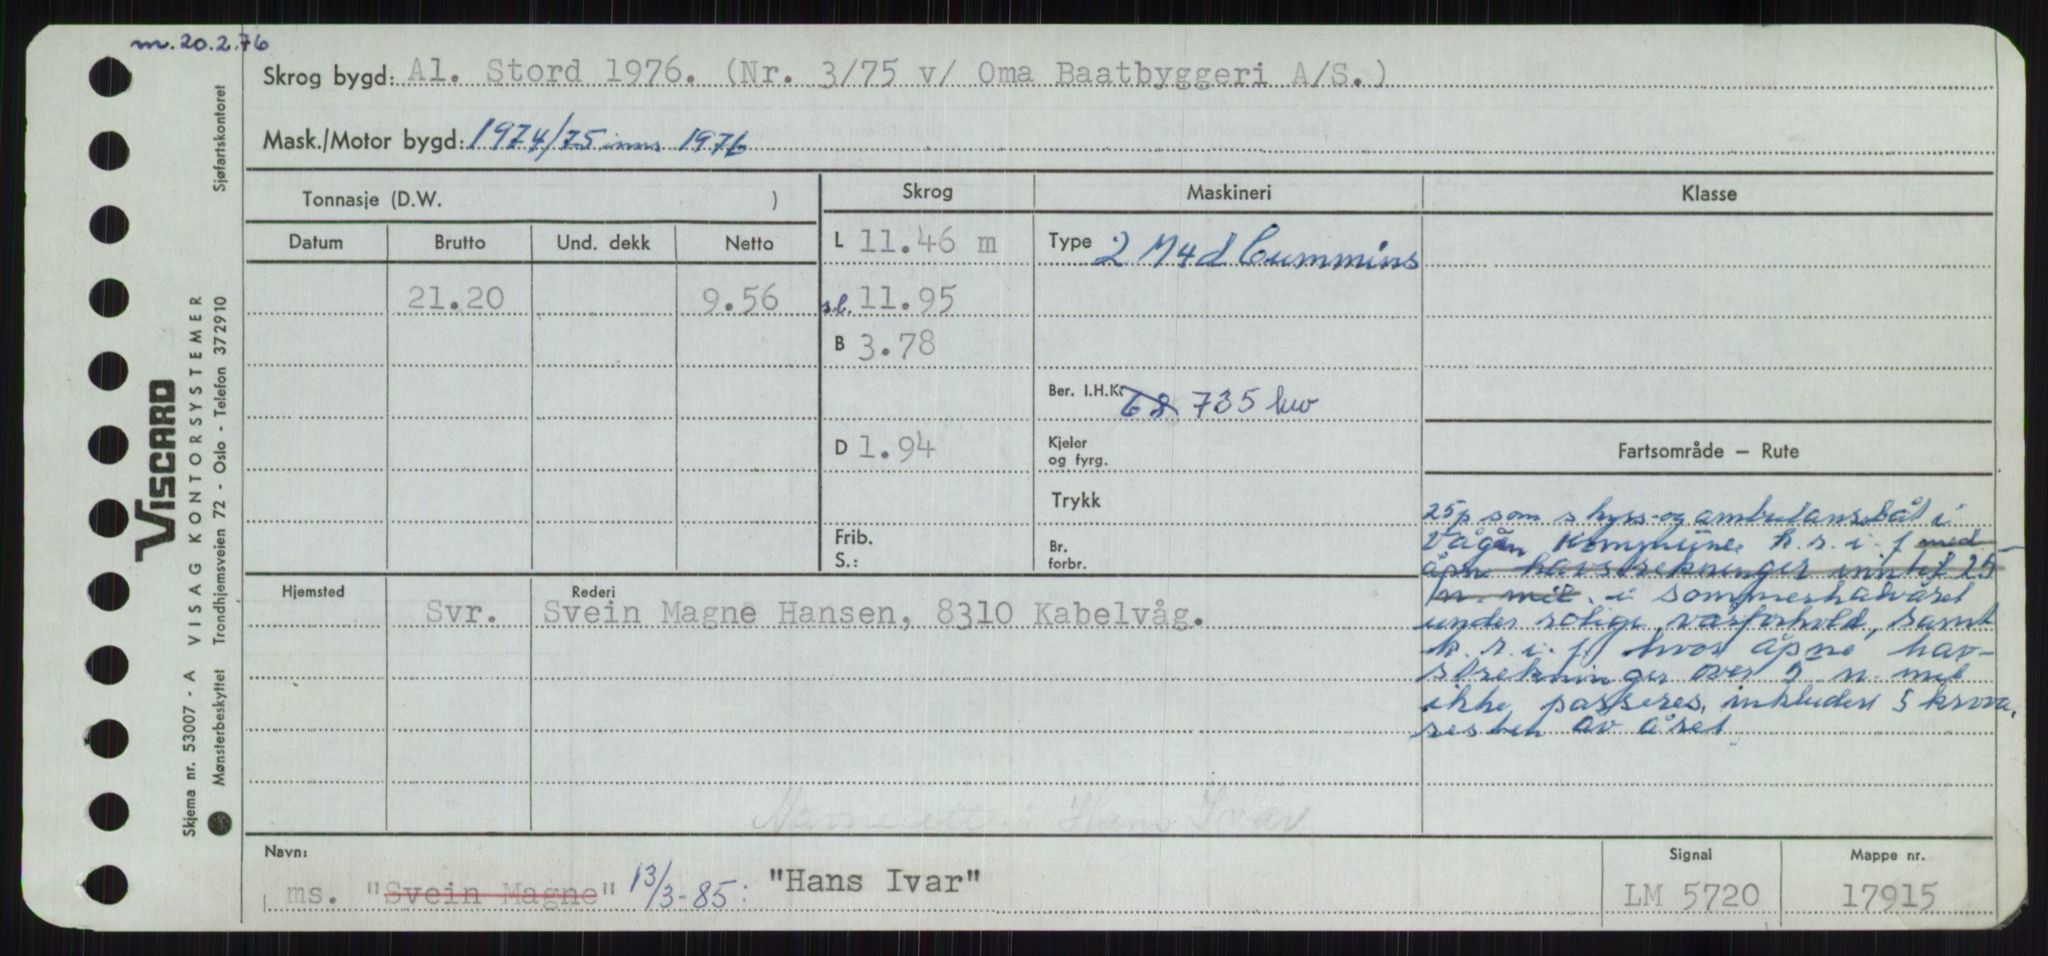 m. 20.2.76
Skrog bygd: Al. Stord 1976. (Nr. 3/75 v/ Oma Baatbyggeri A/S.)
Mask./Motor bygd: 1974/75 inns 1976
Tonnasje (D.W. )
Skrog
Maskineri
Klasse
Datum Brutto Und. dekk Netto
L 11.46 m
Type 2 M4d Cummins
21.20 9.56
s.l. 11.95
B 3.78
Ber. I.H.K. 68 735 kw
D 1.94
Kjeler
og fyrg.
Trykk
Frib.
S.:
Br.
forbr.
Fartsområde — Rute
25 p som skyss- og ambulansebåt i
Vågan kommune k.s.i.f med
åpne havstrekninger inntil 25
n. mil. i sommerhalvåret
under rolige værforhold, samt
k.s.i.f hvor åpne hav-
strekninger over 5 n. mil
ikke passeres, inkludert
resten av året
Hjemsted Rederi
Svr. Svein Magne Hansen, 8310 Kabelvåg.
Hans Ivar
Navn:
ms. "Svein Magne" 13/3-85: "Hans Ivar"
Signal
LM 5720
Mappe nr.
17915
VISCARD
Skjema nr. 53007 - A VISAG KONTORSYSTEMER
Mønsterbeskyttet Trondhjemsveien 72 - Oslo - Telefon 372910 Sjøfartskontoret